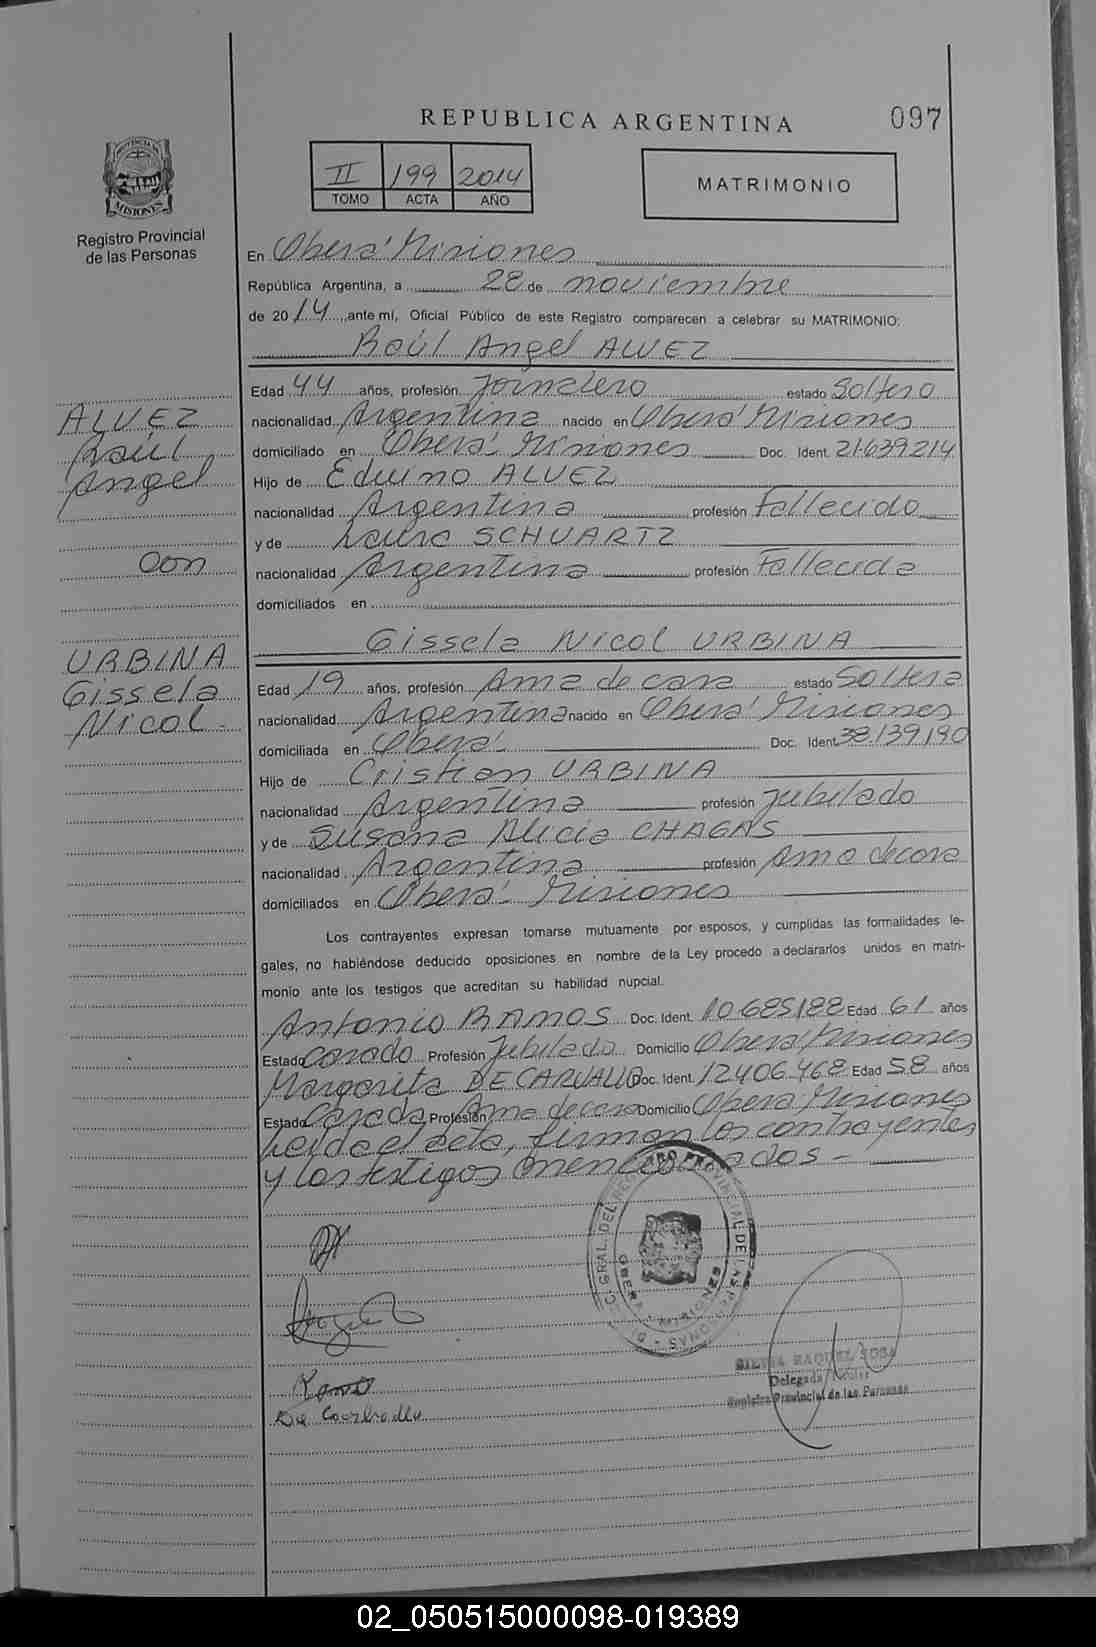 REPUBLICA ARGENTINA
097
II 199 2014
TOMO ACTA AÑO
MATRIMONIO
PROVINCIA
MISIONES
Registro Provincial
de las Personas
En Oberá Misiones
República Argentina, a 28 de noviembre
de 2014, ante mí, Oficial Público de este Registro comparecen a celebrar su MATRIMONIO:
Raúl Angel ALVEZ
Edad 44 años, profesión Jornalero estado Soltero
nacionalidad Argentina nacido en Oberá Misiones
domiciliado en Oberá - Misiones Doc. Ident. 21.639.214
Hijo de Eduino ALVEZ
nacionalidad Argentina profesión Fallecido
y de Laura SCHUARTZ
nacionalidad Argentina profesión Fallecida
domiciliados en
ALVEZ
Raúl
Angel
Con
URBINA
Gissela
Nicol.
Gissela Nicol URBINA
Edad 19 años, profesión Ama de casa estado Soltera
nacionalidad Argentina nacido en Oberá Misiones
domiciliada en Oberá - Doc. Ident. 38.139.190
Hijo de Cristian URBINA
nacionalidad Argentina profesión Jubilado
y de Susana Alicia CHAGAS
nacionalidad Argentina profesión Ama de casa
domiciliados en Oberá - Misiones
Los contrayentes expresan tomarse mutuamente por esposos, y cumplidas las formalidades le-
gales, no habiéndose deducido oposiciones en nombre de la Ley procedo a declararlos unidos en matri-
monio ante los testigos que acreditan su habilidad nupcial.
Antonio RAMOS Doc. Ident. 10.685.188 Edad 61 años
Estado Casado Profesión Jubilado Domicilio Oberá Misiones
Margarita DE CARVALLO Doc. Ident. 12.406.468 Edad 58 años
Estado Casada Profesión Ama de casa Domicilio Oberá Misiones
Leída el acta, firman los contrayentes
y los testigos mencionados -
OBERA MISIONES
Ramos
De Carballo
SILVIA RAQUEL SOSA
Delegada Titular
Registro Provincial de las Personas
02_050515000098-019389